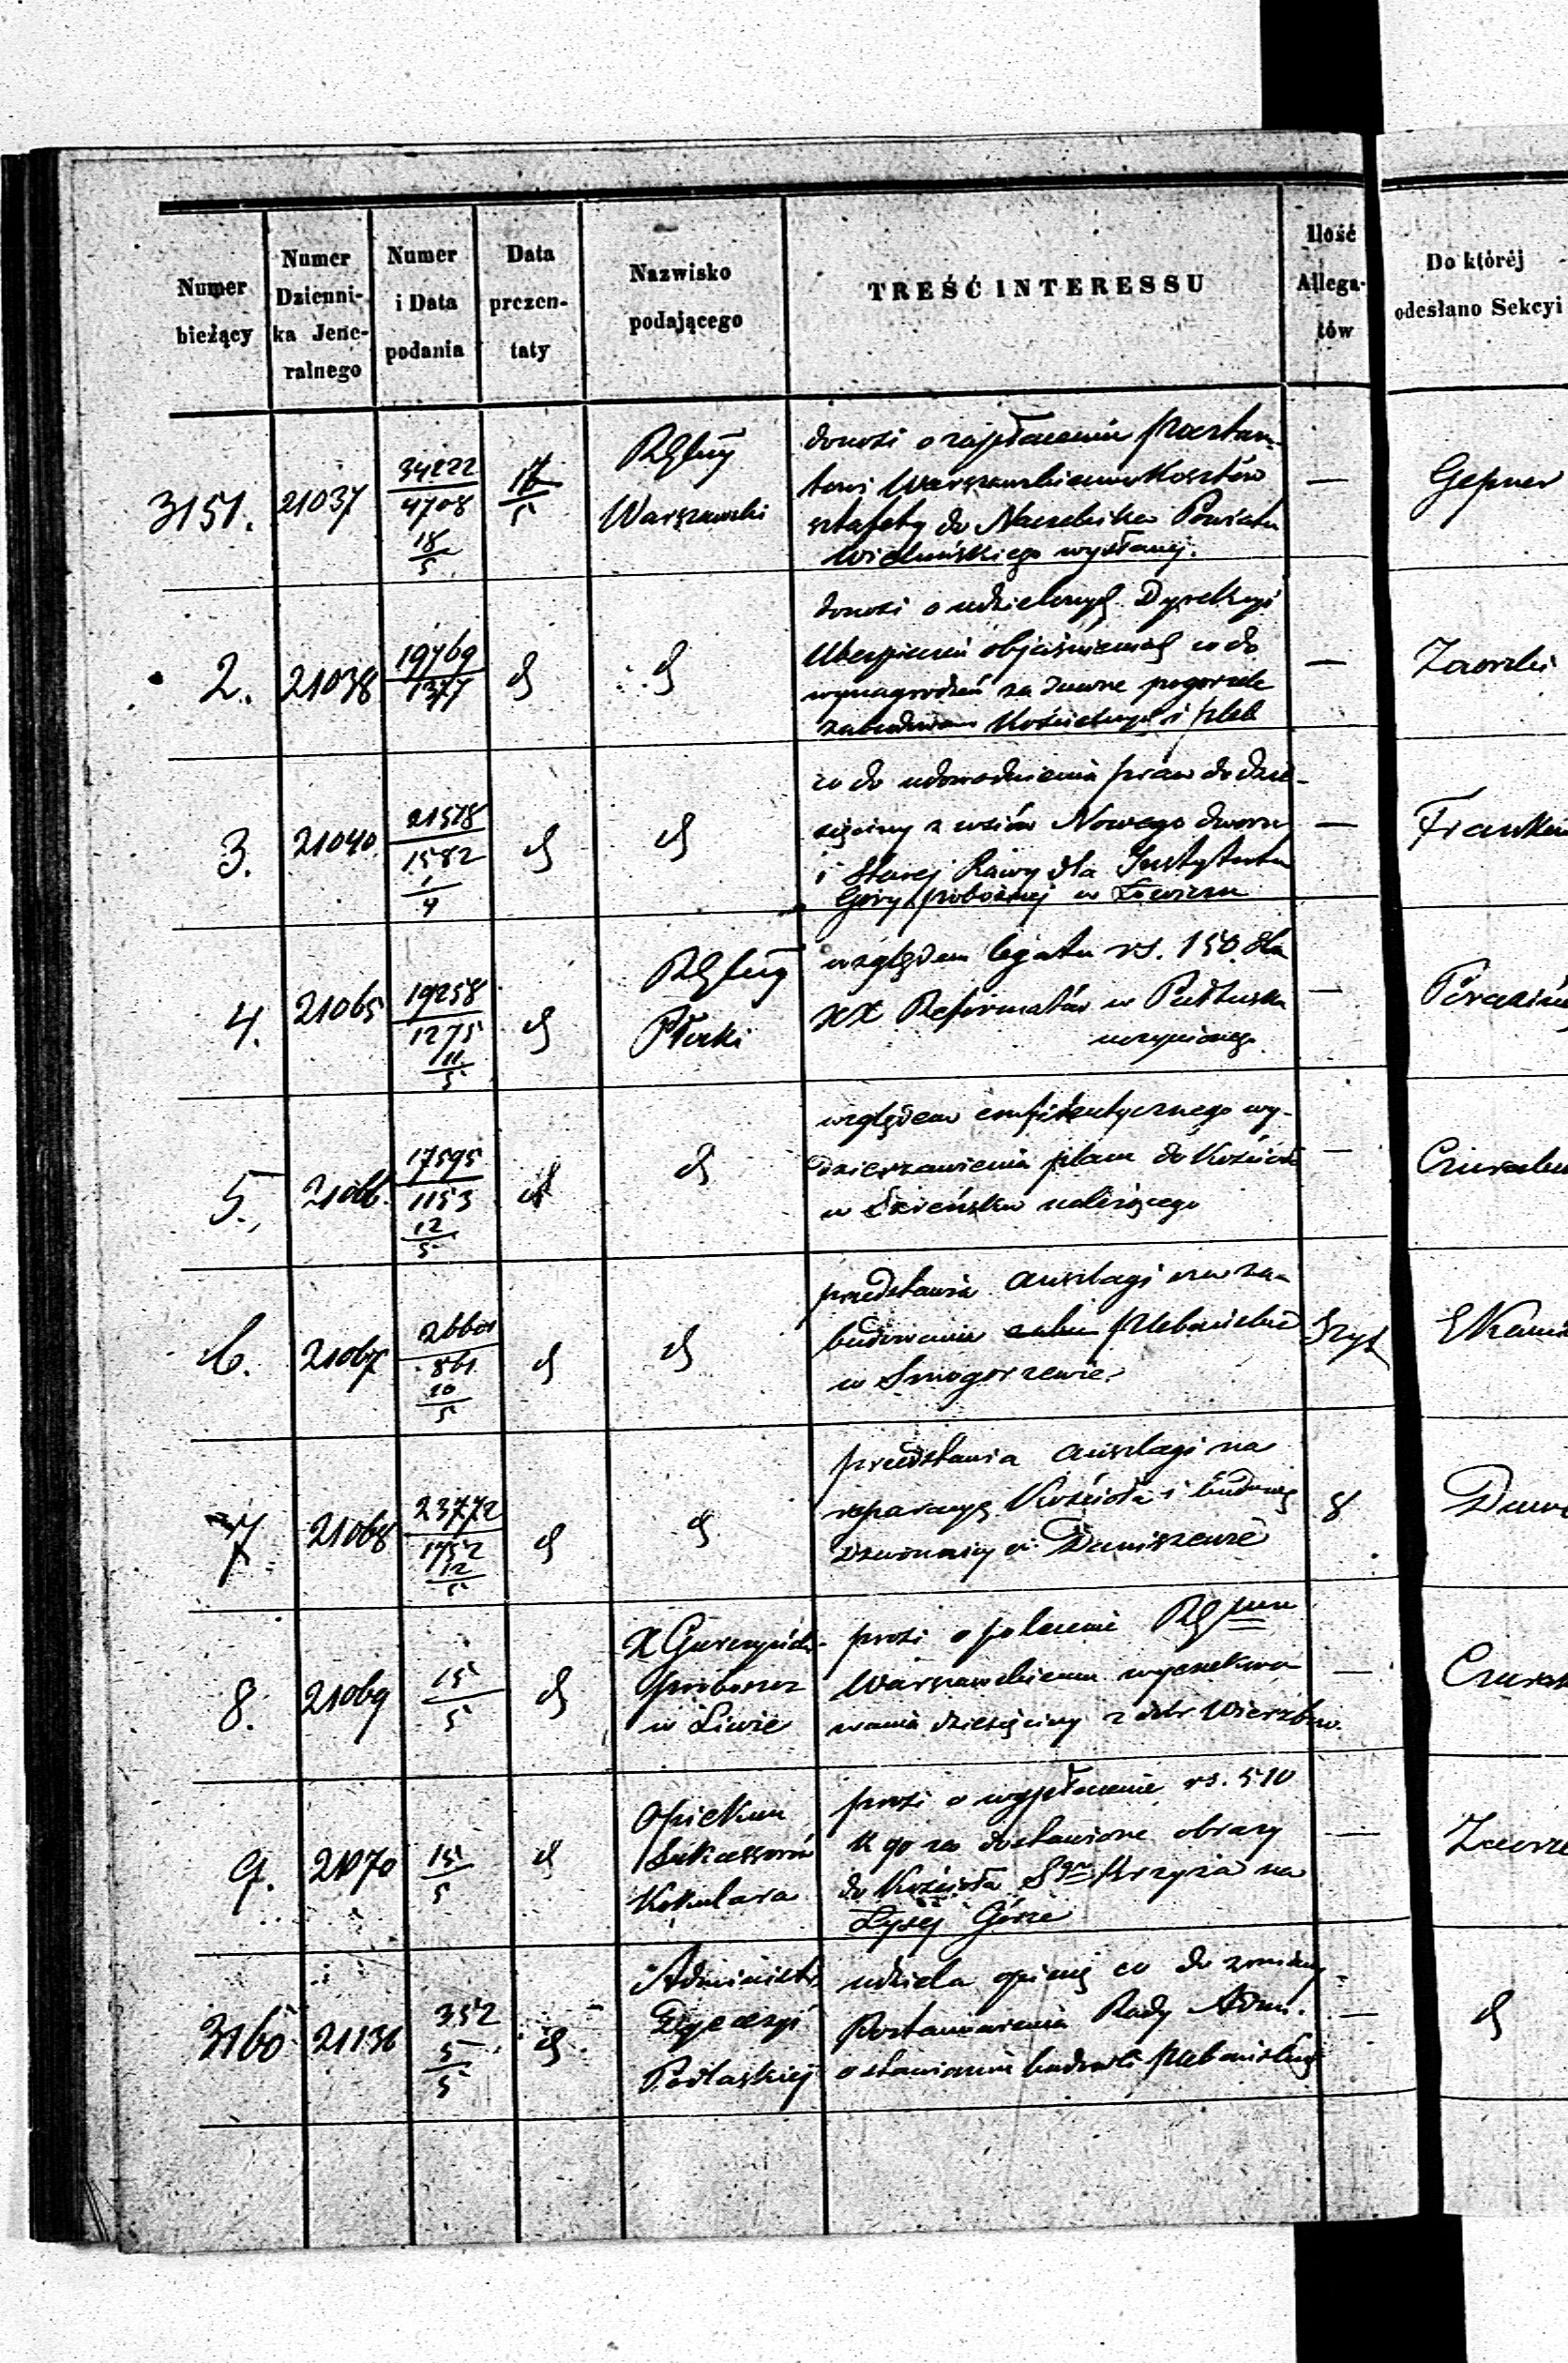 Numer bieżący
Numer Dzienni- ka Jene- ralnego
Numer i Data podania
Data prezen- taty
Nazwisko podającego
TREŚĆ INTERESSU
Ilość Allega- tów
Do któréj odesłano Sekcyi
3151. 21037 34222 4708 18/5 17/5
Warszawski
donosi o zapłaceniu
Warszawskiemu kosztów
sztafety do Naczelnika Powiatu
Wieluńskiego wysłanej.
—
Gepner
2. 21038 19769 1377
donosi o udzielonych Dyrekcyi
Ubezpieczeń objaśnieniach co do
wynagrodzeń za dawne pogorzele
zabudowań Kościelnych i pleb
—
3. 21040 21578 1582 1/4
co do udowodnienia praw do dzie-
sięciny z wsiów Nowego dworu
i Starej Rawy dla Instytutu
Góry pobożnej w Łowiczu
—
4. 21065 19258 1275 11/5
Płocki
względem legatu rs. 150. dla
XX Reformatów w Pułtusku
uczynionego
—
5. 21066. 17595 1153 12/5
względem emfiteutycznego wy-
dzierżawienia placu do Kościoła
w Szreńsku należącego
—
6. 21067 861 10/5
przedstawia anszlagi na za-
budowania plebańskie
w Smogorzewie
3 zsz
7 21068 23772 1752 12/5
przedstawia anszlagi na
reparacyą Kościoła i budowę
dzwonnicy w
8
8. 21069 15/5
proboszcz
w Liwie
prosi o polecenie
Warszawskiemu wyexekwo-
wania dziesięciny z dóbr Wierzbno.
—
9. 21070 15/5
Opiekun
Sukcessorów
Kokulara
prosi o wypłacenie rs. 510
k 90 za dostawione obrazy
do Kościoła Sgo Krzyża na
Łysej Górze
—
3160 21136 352 5/5
Administr.
Dyecezyi
Podlaskiej
udziela opinię co do zmiany
Postanowienia Rady Adm.
o stawianiu budowli plebańskich
—